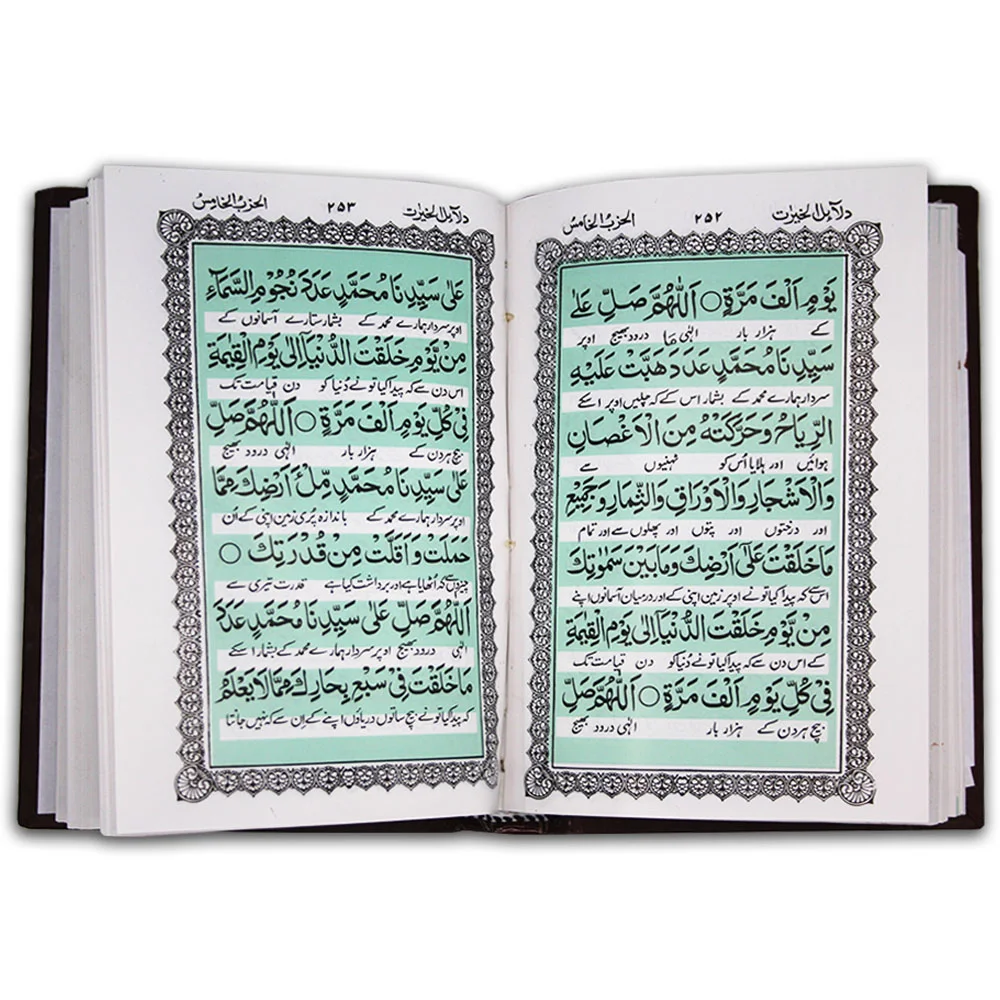 دلآئل الخيرت ٢٥٢ الحزب الخامس
يَوْمٍ اَلْفَ مَرَّةٍ ○ اَللّٰهُمَّ صَلِّ عَلٰى
کے ہزار بار الٰہی درود بھیج اوپر
سَيِّدِنَا مُحَمَّدٍ عَدَدَ مَا هَبَّتْ عَلَيْهِ
سردار ہمارے محمد کے بشمار اس کے کہ چلیں اوپر اسکے
الرِّيَاحُ وَحَرَّكَتْهُ مِنَ الْاَغْصَانِ
ہوائیں اور ہلایا اس کو ٹہنیوں سے
وَالْاَشْجَارِ وَالْاَوْرَاقِ وَالثِّمَارِ وَجَمِيْعِ
اور درختوں اور پتوں اور پھلوں سے اور تمام
مَا خَلَقْتَ عَلٰٓى اَرْضِكَ وَمَا بَيْنَ سَمٰوٰتِكَ
اس کے کہ پیدا کیا تونے اوپر زمین اپنی کے اور درمیان آسمانوں اپنے
مِنْ يَّوْمِ خَلَقْتَ الدُّنْيَآ اِلٰى يَوْمِ الْقِيٰمَةِ
کے اس دن سے کہ پیدا کیا تونے دُنیا کو دن قیامت تک
فِيْ كُلِّ يَوْمٍ اَلْفَ مَرَّةٍ ○ اَللّٰهُمَّ صَلِّ
بیچ ہر دن کے ہزار بار الٰہی درود بھیج
دلآئل الخيرت ٢٥٣ الحزب الخامس
عَلٰى سَيِّدِنَا مُحَمَّدٍ عَدَدَ نُجُوْمِ السَّمَآءِ
اوپر سردار ہمارے محمد کے بشمار ستارے آسمانوں کے
مِنْ يَّوْمِ خَلَقْتَ الدُّنْيَآ اِلٰى يَوْمِ الْقِيٰمَةِ
اس دن سے کہ پیدا کیا تونے دُنیا کو دن قیامت تک
فِيْ كُلِّ يَوْمٍ اَلْفَ مَرَّةٍ ○ اَللّٰهُمَّ صَلِّ
بیچ ہر دن کے ہزار بار الٰہی درود بھیج
عَلٰى سَيِّدِنَا مُحَمَّدٍ مِّلْءَ اَرْضِكَ مِمَّا
اوپر سردار ہمارے محمد کے باندازہ پُری زمین اپنی کے اُن
حَمَلَتْ وَاَقَلَّتْ مِنْ قُدْرَتِكَ ○
چیزوں سے کہ اُٹھایا ہے اور برداشت کیا ہے قدرت تیری سے
اَللّٰهُمَّ صَلِّ عَلٰى سَيِّدِنَا مُحَمَّدٍ عَدَدَ
الٰہی درود بھیج اوپر سردار ہمارے محمد کے بشمار اسکے
مَا خَلَقْتَ فِيْ سَبْعِ بِحَارِكَ مِمَّا لَا يَعْلَمُ
کہ پیدا کیا تونے بیچ ساتوں دریاؤں اپنے کے اِن سے کہ نہیں جانتا